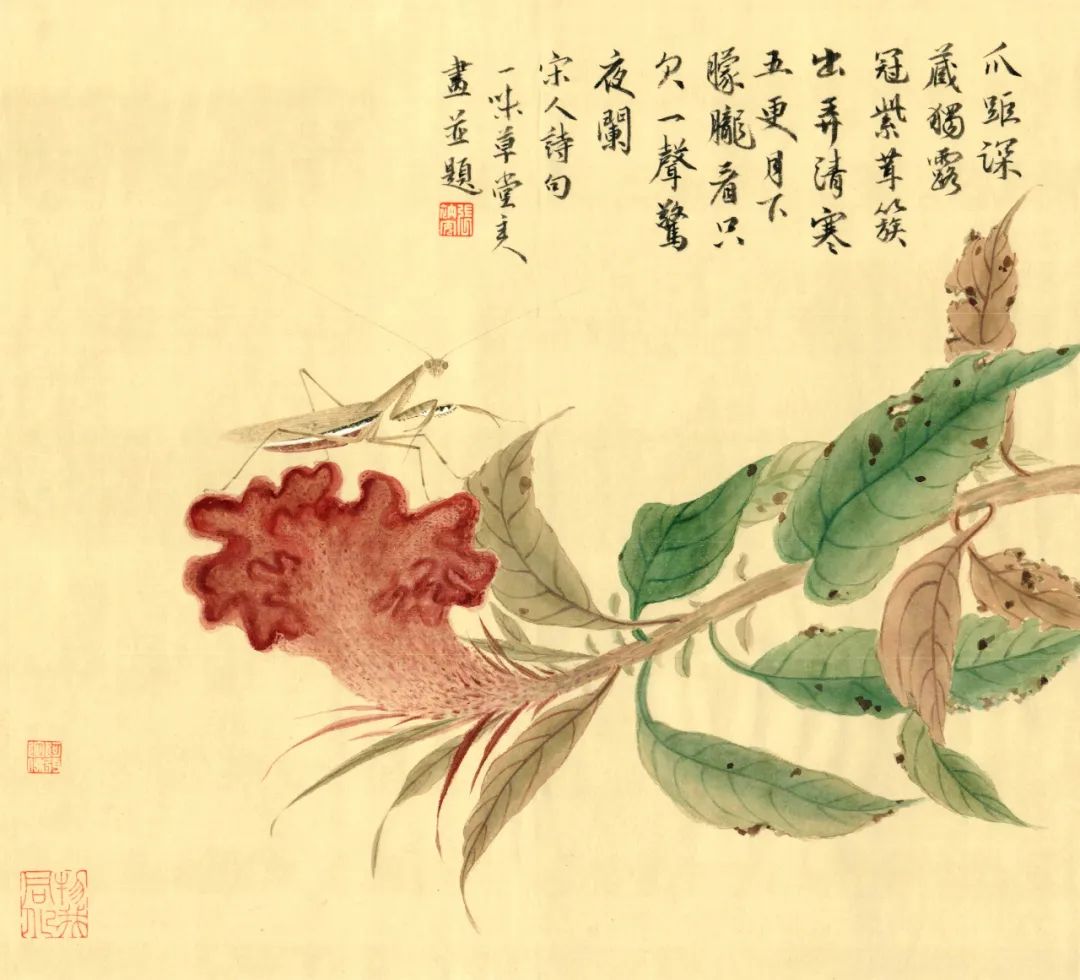 爪距深
藏獨露
冠紫茸簇
出弄清寒
五更月下
朦朧看只
欠一聲驚
夜闌
宋人詩句
一味草堂主人
畫並題